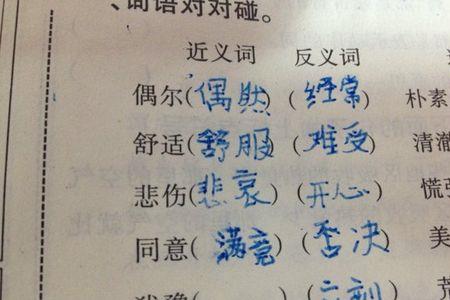 、词语对对碰。
近义词 反义词
偶尔(偶然) (经常) 朴素
舒适(舒服) (难受) 清澈
悲伤(悲哀) (开心) 慌张
同意(满意) (否决) 美